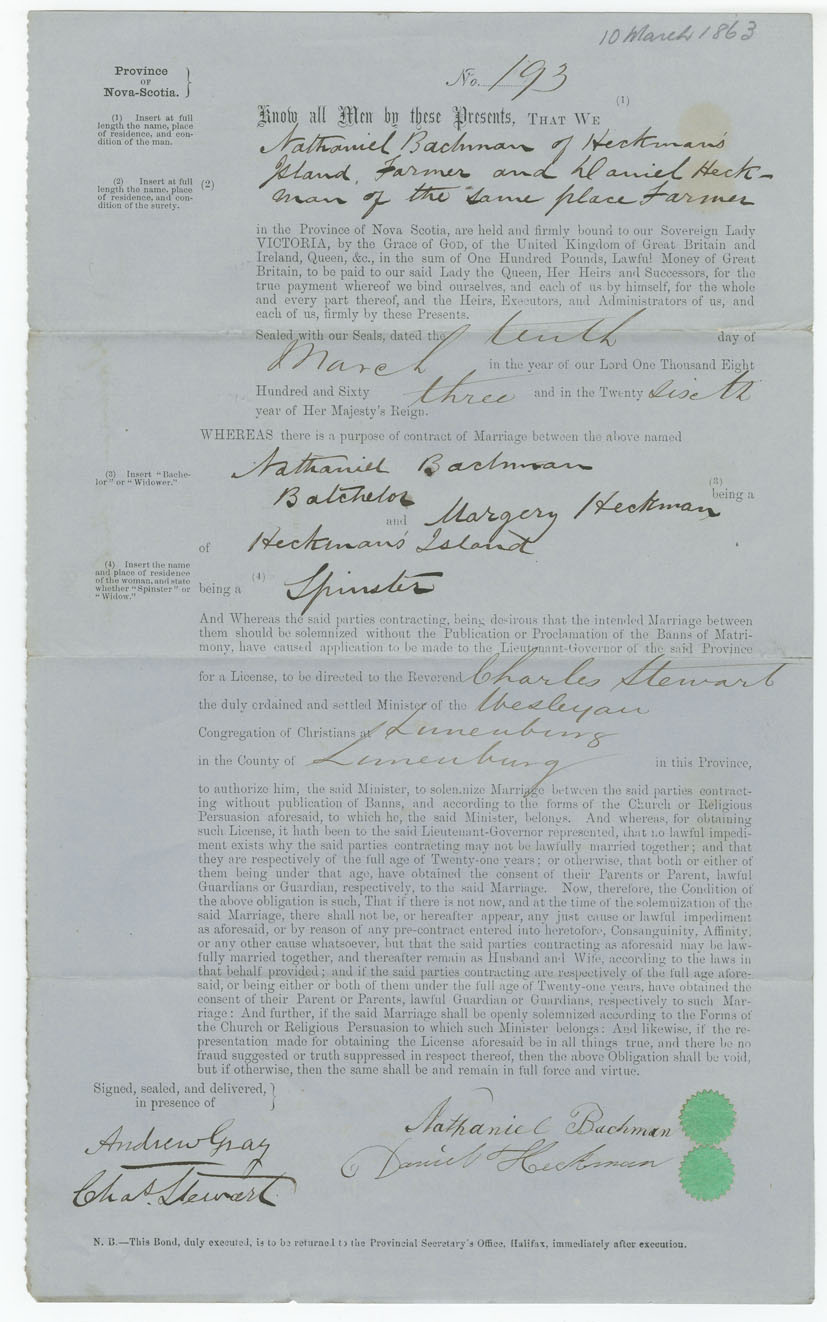 10 March 1863
Province
OF
Nova-Scotia.
No. 193
(1)
Know all Men by these Presents, THAT WE
(1) Insert at full
length the name, place
of residence, and con-
dition of the man.
Nathaniel Bachman of Heckman's
Island, Farmer and Daniel Heck-
(2) Insert at full
length the name, place
of residence, and con-
dition of the surety.
(2)
man of the same place Farmer
in the Province of Nova Scotia, are held and firmly bound to our Sovereign Lady
VICTORIA, by the Grace of GOD, of the United Kingdom of Great Britain and
Ireland, Queen, &c., in the sum of One Hundred Pounds, Lawful Money of Great
Britain, to be paid to our said Lady the Queen, Her Heirs and Successors, for the
true payment whereof we bind ourselves, and each of us by himself, for the whole
and every part thereof, and the Heirs, Executors, and Administrators of us, and
each of us, firmly by these Presents.
Sealed with our Seals, dated the tenth day of
March in the year of our Lord One Thousand Eight
Hundred and Sixty three and in the Twenty sixth
year of Her Majesty's Reign.
WHEREAS there is a purpose of contract of Marriage between the above named
(3) Insert "Bache-
lor" or "Widower."
Nathaniel Bachman
(3)
being a
Batchelor and Margery Heckman
of Heckman's Island
(4) Insert the name
and place of residence
of the woman, and state
whether "Spinster" or
"Widow."
(4)
being a Spinster
And Whereas the said parties contracting, being desirous that the intended Marriage between
them should be solemnized without the Publication or Proclamation of the Banns of Matri-
mony, have caused application to be made to the Lieutenant-Governor of the said Province
for a License, to be directed to the Reverend Charles Stewart
the duly ordained and settled Minister of the Wesleyan
Congregation of Christians at Lunenburg
in the County of Lunenburg in this Province,
to authorize him, the said Minister, to solemnize Marriage between the said parties contract-
ing without publication of Banns, and according to the forms of the Church or Religious
Persuasion aforesaid, to which he, the said Minister, belongs. And whereas, for obtaining
such License, it hath been to the said Lieutenant-Governor represented, that no lawful impedi-
ment exists why the said parties contracting may not be lawfully married together; and that
they are respectively of the full age of Twenty-one years; or otherwise, that both or either of
them being under that age, have obtained the consent of their Parents or Parent, lawful
Guardians or Guardian, respectively, to the said Marriage. Now, therefore, the Condition of
the above obligation is such, That if there is not now, and at the time of the solemnization of the
said Marriage, there shall not be, or hereafter appear, any just cause or lawful impediment
as aforesaid, or by reason of any pre-contract entered into heretofore, Consanguinity, Affinity,
or any other cause whatsoever, but that the said parties contracting as aforesaid may be law-
fully married together, and thereafter remain as Husband and Wife, according to the laws in
that behalf provided; and if the said parties contracting are respectively of the full age afore-
said, or being either or both of them under the full age of Twenty-one years, have obtained the
consent of their Parent or Parents, lawful Guardian or Guardians, respectively to such Mar-
riage: And further, if the said Marriage shall be openly solemnized according to the Forms of
the Church or Religious Persuasion to which such Minister belongs: And likewise, if the re-
presentation made for obtaining the License aforesaid be in all things true, and there be no
fraud suggested or truth suppressed in respect thereof, then the above Obligation shall be void,
but if otherwise, then the same shall be and remain in full force and virtue.
Signed, sealed, and delivered,
in presence of
Nathaniel Bachman
Andrew Gray
Daniel Heckman
Chas. Stewart
N. B.—This Bond, duly executed, is to be returned to the Provincial Secretary's Office, Halifax, immediately after execution.